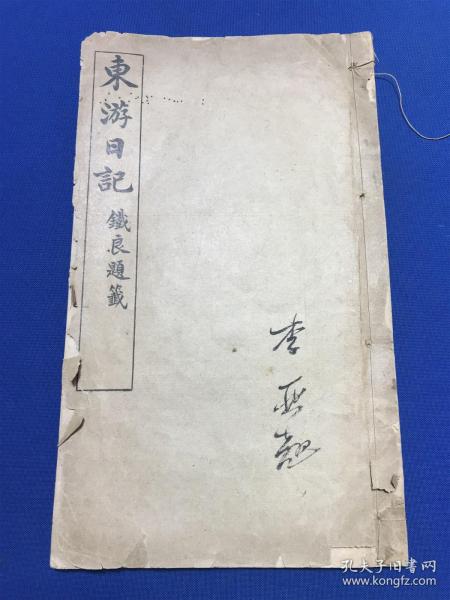 東游日記
鐵良題籤
李
孔夫子旧書网
www.kongfz.com